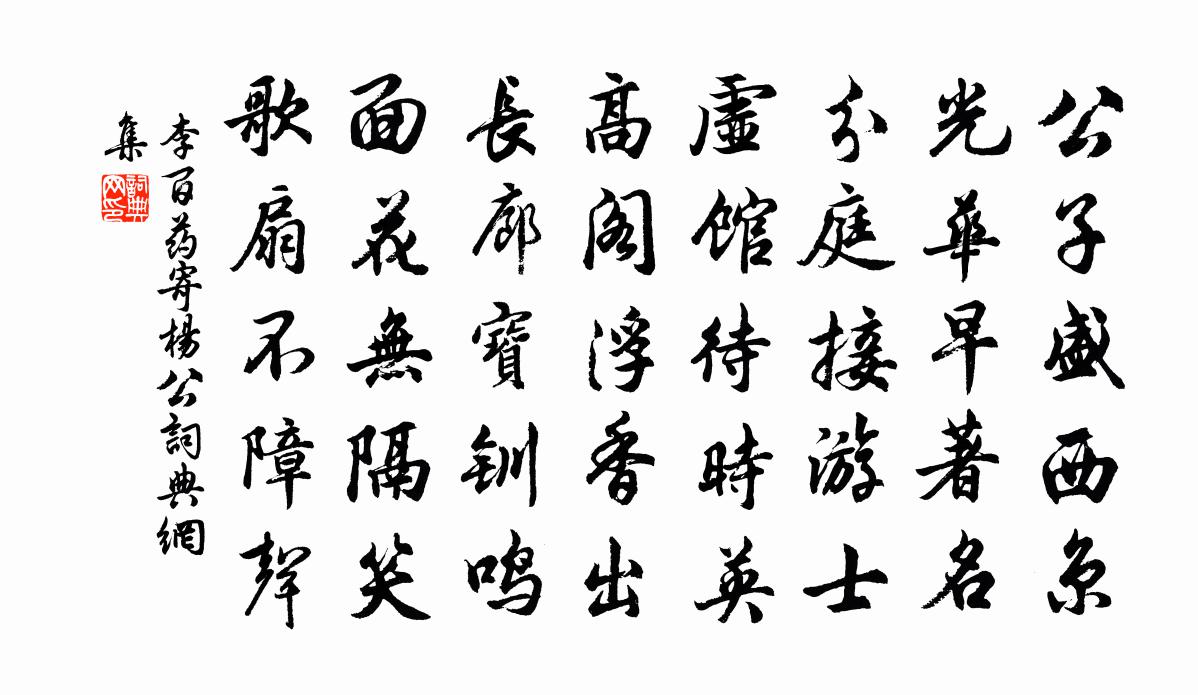 公子盛西京
光華早著名
分庭接游士
虛館待時英
高阁浮香出
長廊寶釧鳴
面花無隔笑
歌扇不障聲
李百药寄楊公詞典網
集
詞典網印